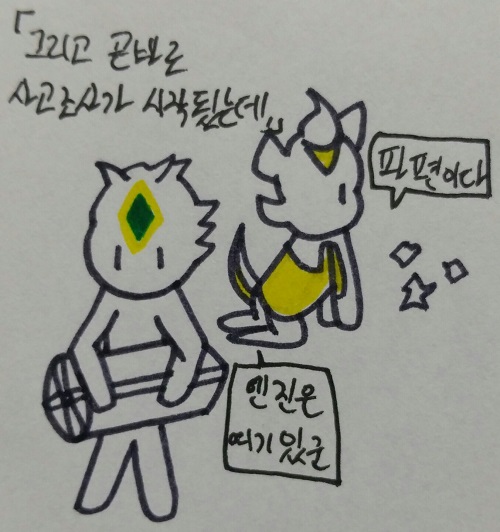 「그리고 곧바로
사고조사가 시작됬는데」
파편이다
엔진은
여기있군